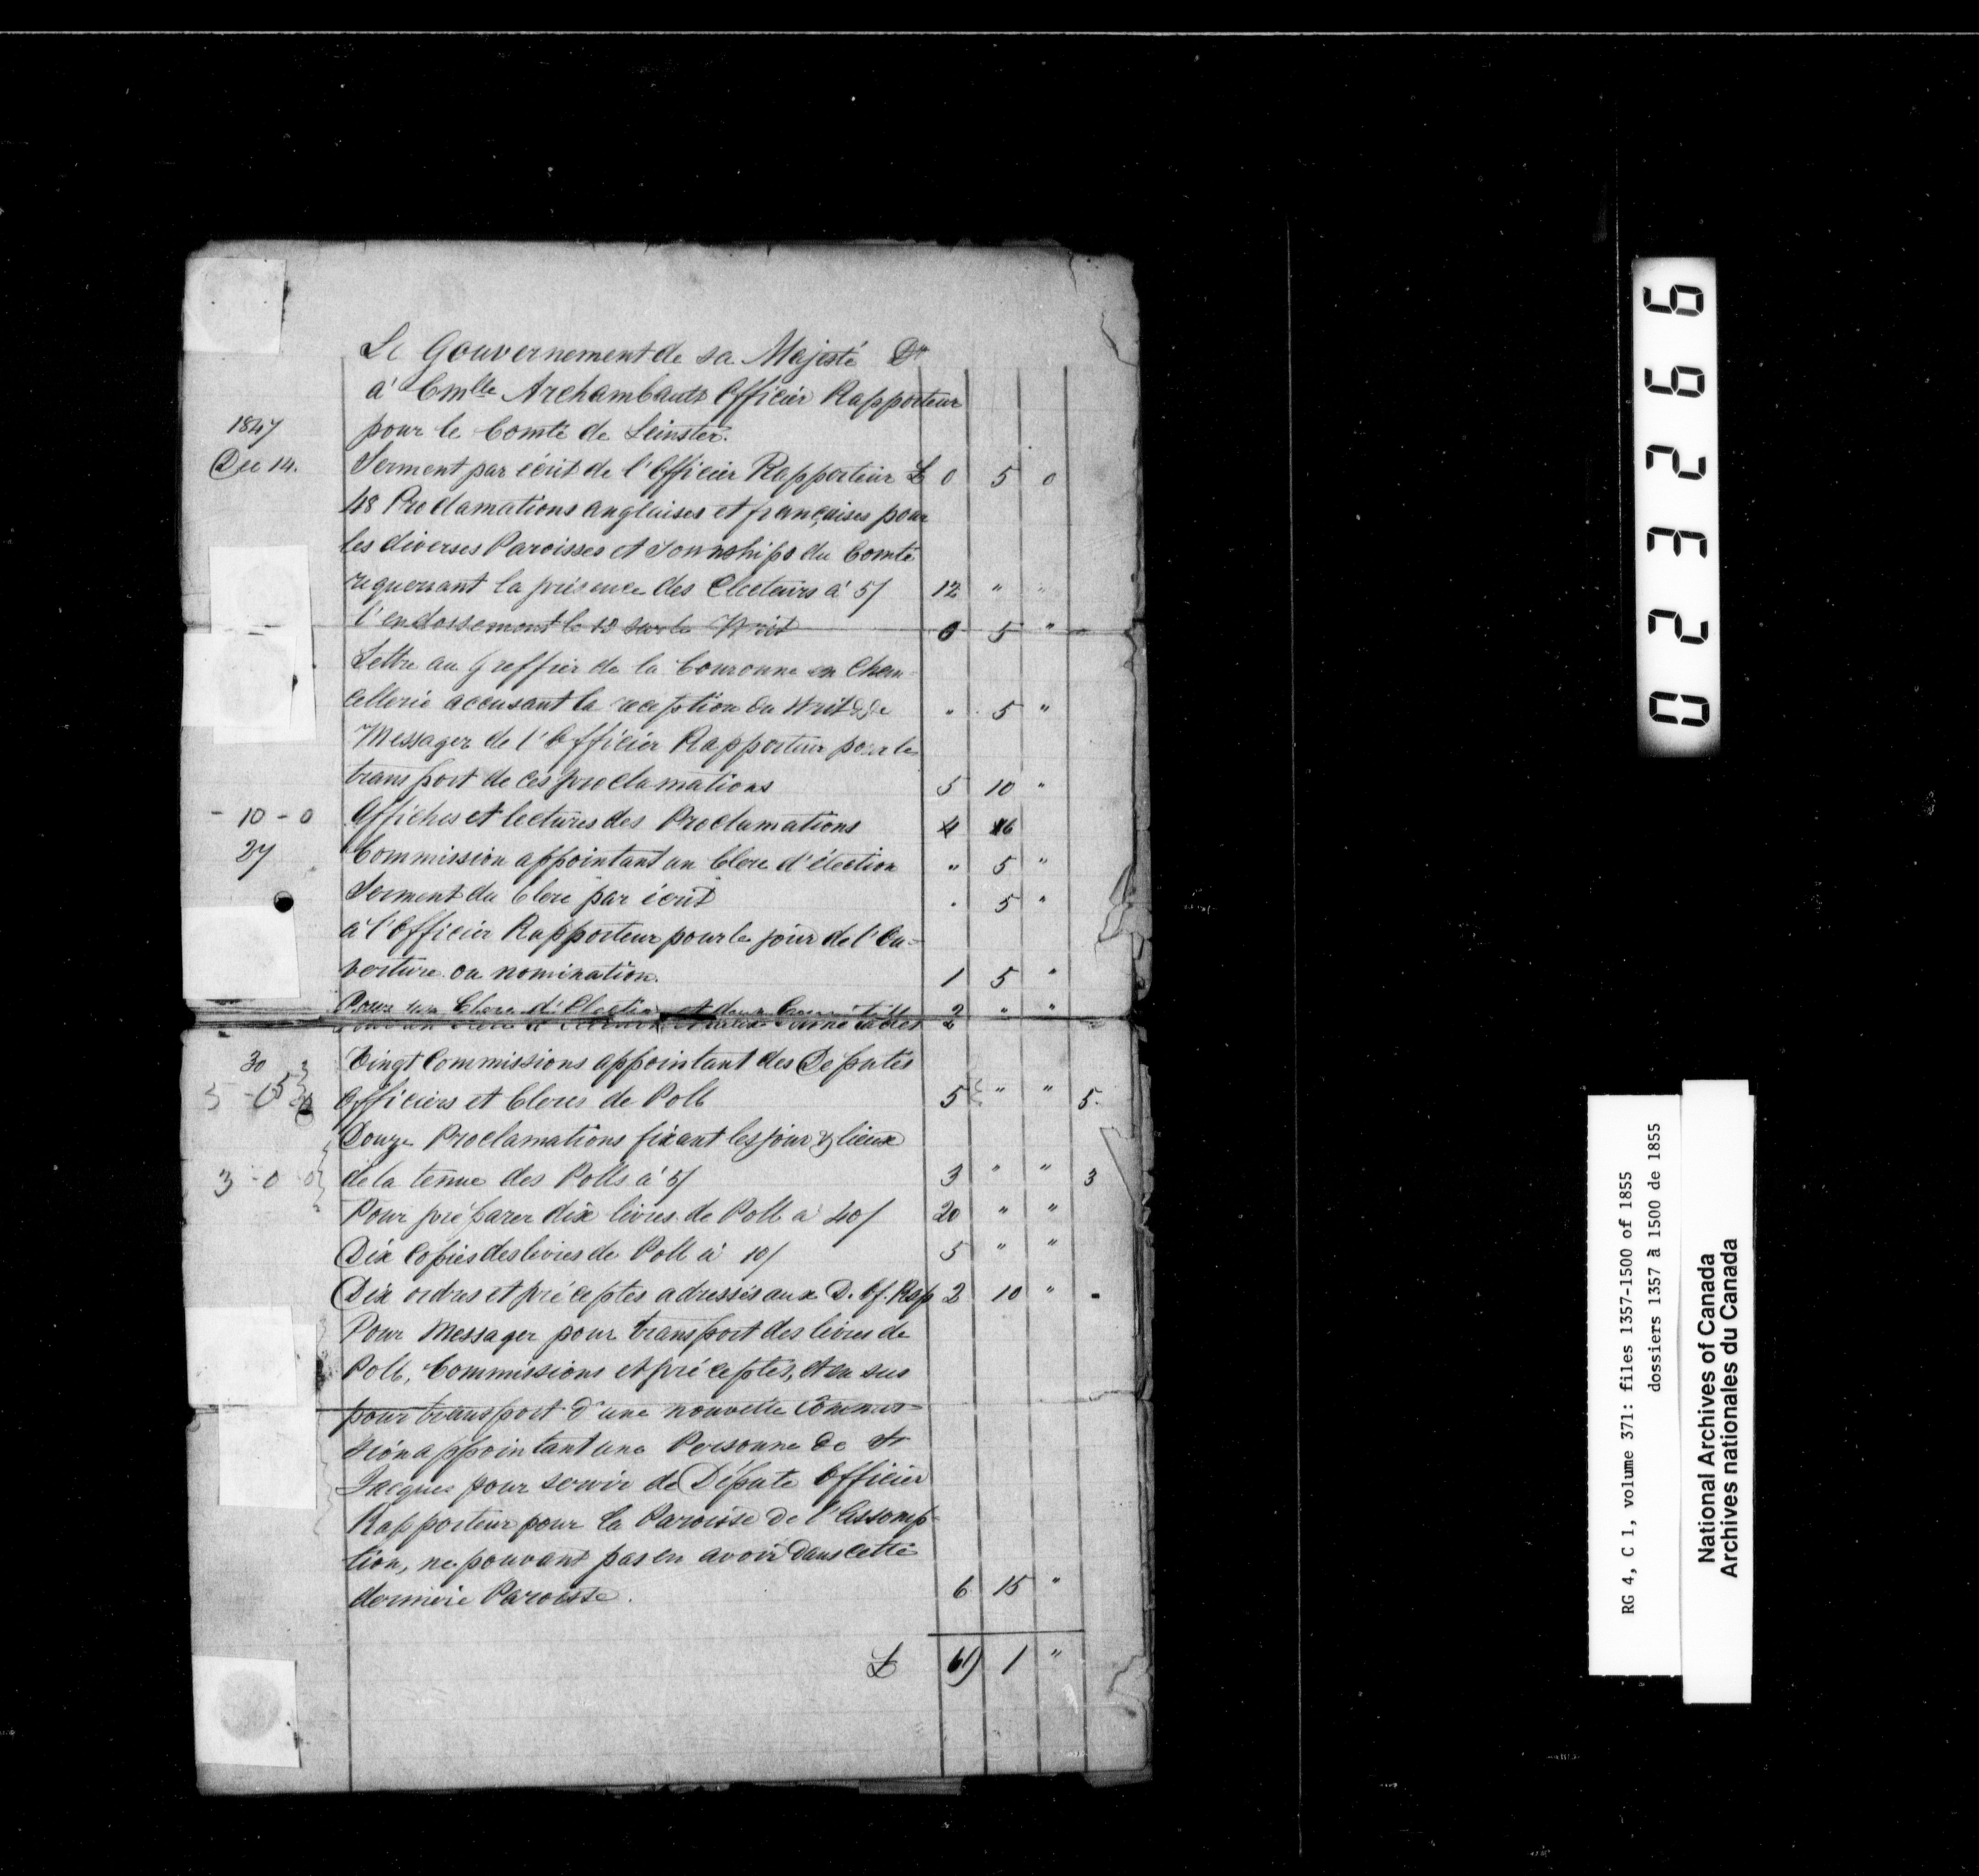 Le Gouvernement de sa Majesté Dr
à Cmlle Archambault Officier Rapporteur
1847 pour le Comté de Leinster.
Dec 14. Serment par écrit de l'Officier Rapporteur £ 0 5 0
48 Proclamations anglaises et françaises pour
les diverses Paroisses et Townships du Comté
requerrant la présence des Electeurs à 5/ 12 " "
l'endossement le 12 sur le Writ 0 5 "
Lettre au Greffier de la Couronne en Chan-
cellerie accusant la reception du Writ &c " 5 "
Messager de l'Officier Rapporteur pour le
transport de ces proclamations 5 10 "
- 10 - 0 Affiches et lectures des Proclamations 4 16
27 Commission appointant un Clerc d'élection " 5 "
Serment du Clerc par écrit " 5 "
à l'Officier Rapporteur pour le jour de l'Ou-
verture ou nomination. 1 5 "
Pour un Clerc d'Election et deux Connétables 2 " "
30 Vingt Commissions appointant des Deputés
Officiers et Clercs de Poll 5 " " 5.
Douze Proclamations fixant les jour & lieux
3 - 0 - 0 de la tenue des Polls à 5/ 3 " " 3
Pour préparer dix livres de Poll à 40/ 20 " "
Dix Copies des livres de Poll à 10/ 5 " "
Dix ordres et préceptes adressés aux D. Of. Rap 2 10 "
Pour Messager pour transport des livres de
Poll, Commissions et préceptes, et en sus
pour transport d'une nouvelle Commis-
sion appointant une Personne de St
Jacques pour servir de Député Officier
Rapporteur pour la Paroisse de l'Assomp-
tion, ne pouvant pas en avoir dans cette
dernière Paroisse. 6 15 "
£ 69 1 "
02366
RG 4, C 1, volume 371: files 1357-1500 of 1855
dossiers 1357 à 1500 de 1855
National Archives of Canada
Archives nationales du Canada